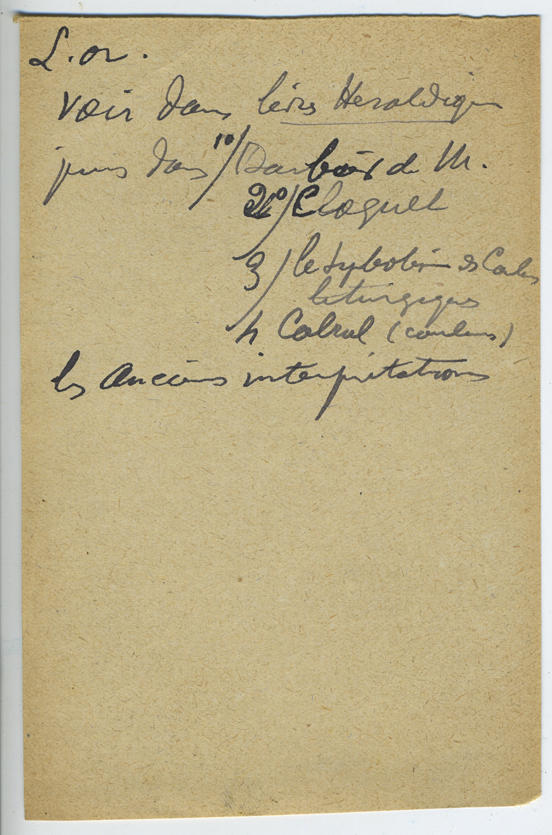 L'or.
voir dans Héraldique
puis dans 1º/ Barbier de M.
2º/ Cloquet
3/ le symbolisme des Couleurs
liturgiques
4 Cabrol (couleurs)
les Anciens interprétations